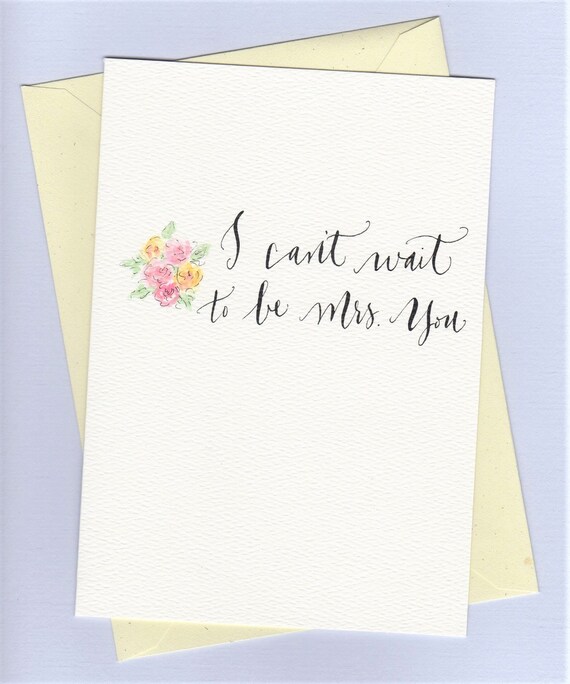 I can't wait
to be Mrs. You